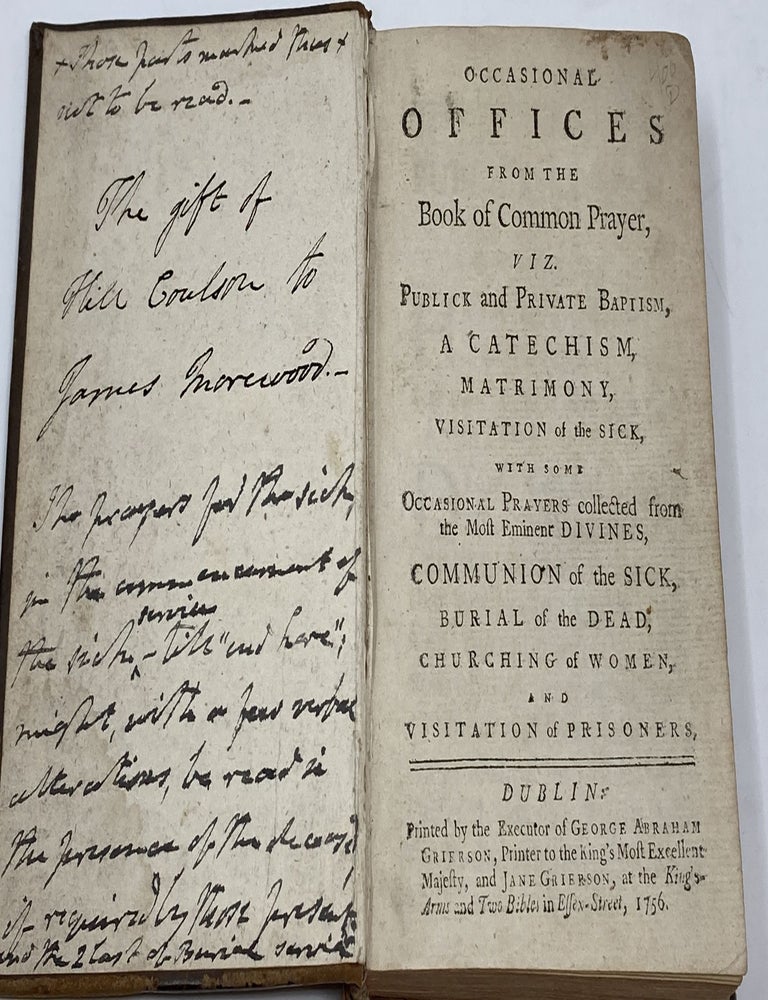 + Those parts marked thus +
not to be read.-
The gift of
Hill Coulson to
James Morewood.-
The prayers for the sick,
in the commencement of
service
the sick, - till "end here";
might, with a few verbal
alterations, be read in
the presence of the deceas'd
if required by those present
and the 2 last of Burial service
OCCASIONAL
OFFICES
FROM THE
Book of Common Prayer,
VIZ.
PUBLICK and PRIVATE BAPTISM,
A CATECHISM,
MATRIMONY,
VISITATION of the SICK,
WITH SOME
OCCASIONAL PRAYERS collected from
the Moſt Eminent DIVINES,
COMMUNION of the SICK,
BURIAL of the DEAD,
CHURCHING of WOMEN,
AND
VISITATION of PRISONERS,
DUBLIN:
Printed by the Executor of GEORGE ABRAHAM
GRIERSON, Printer to the King's Moſt Excellent
Majeſty, and JANE GRIERSON, at the King's-
Arms and Two Bibles in Eſſex-Street, 1756.